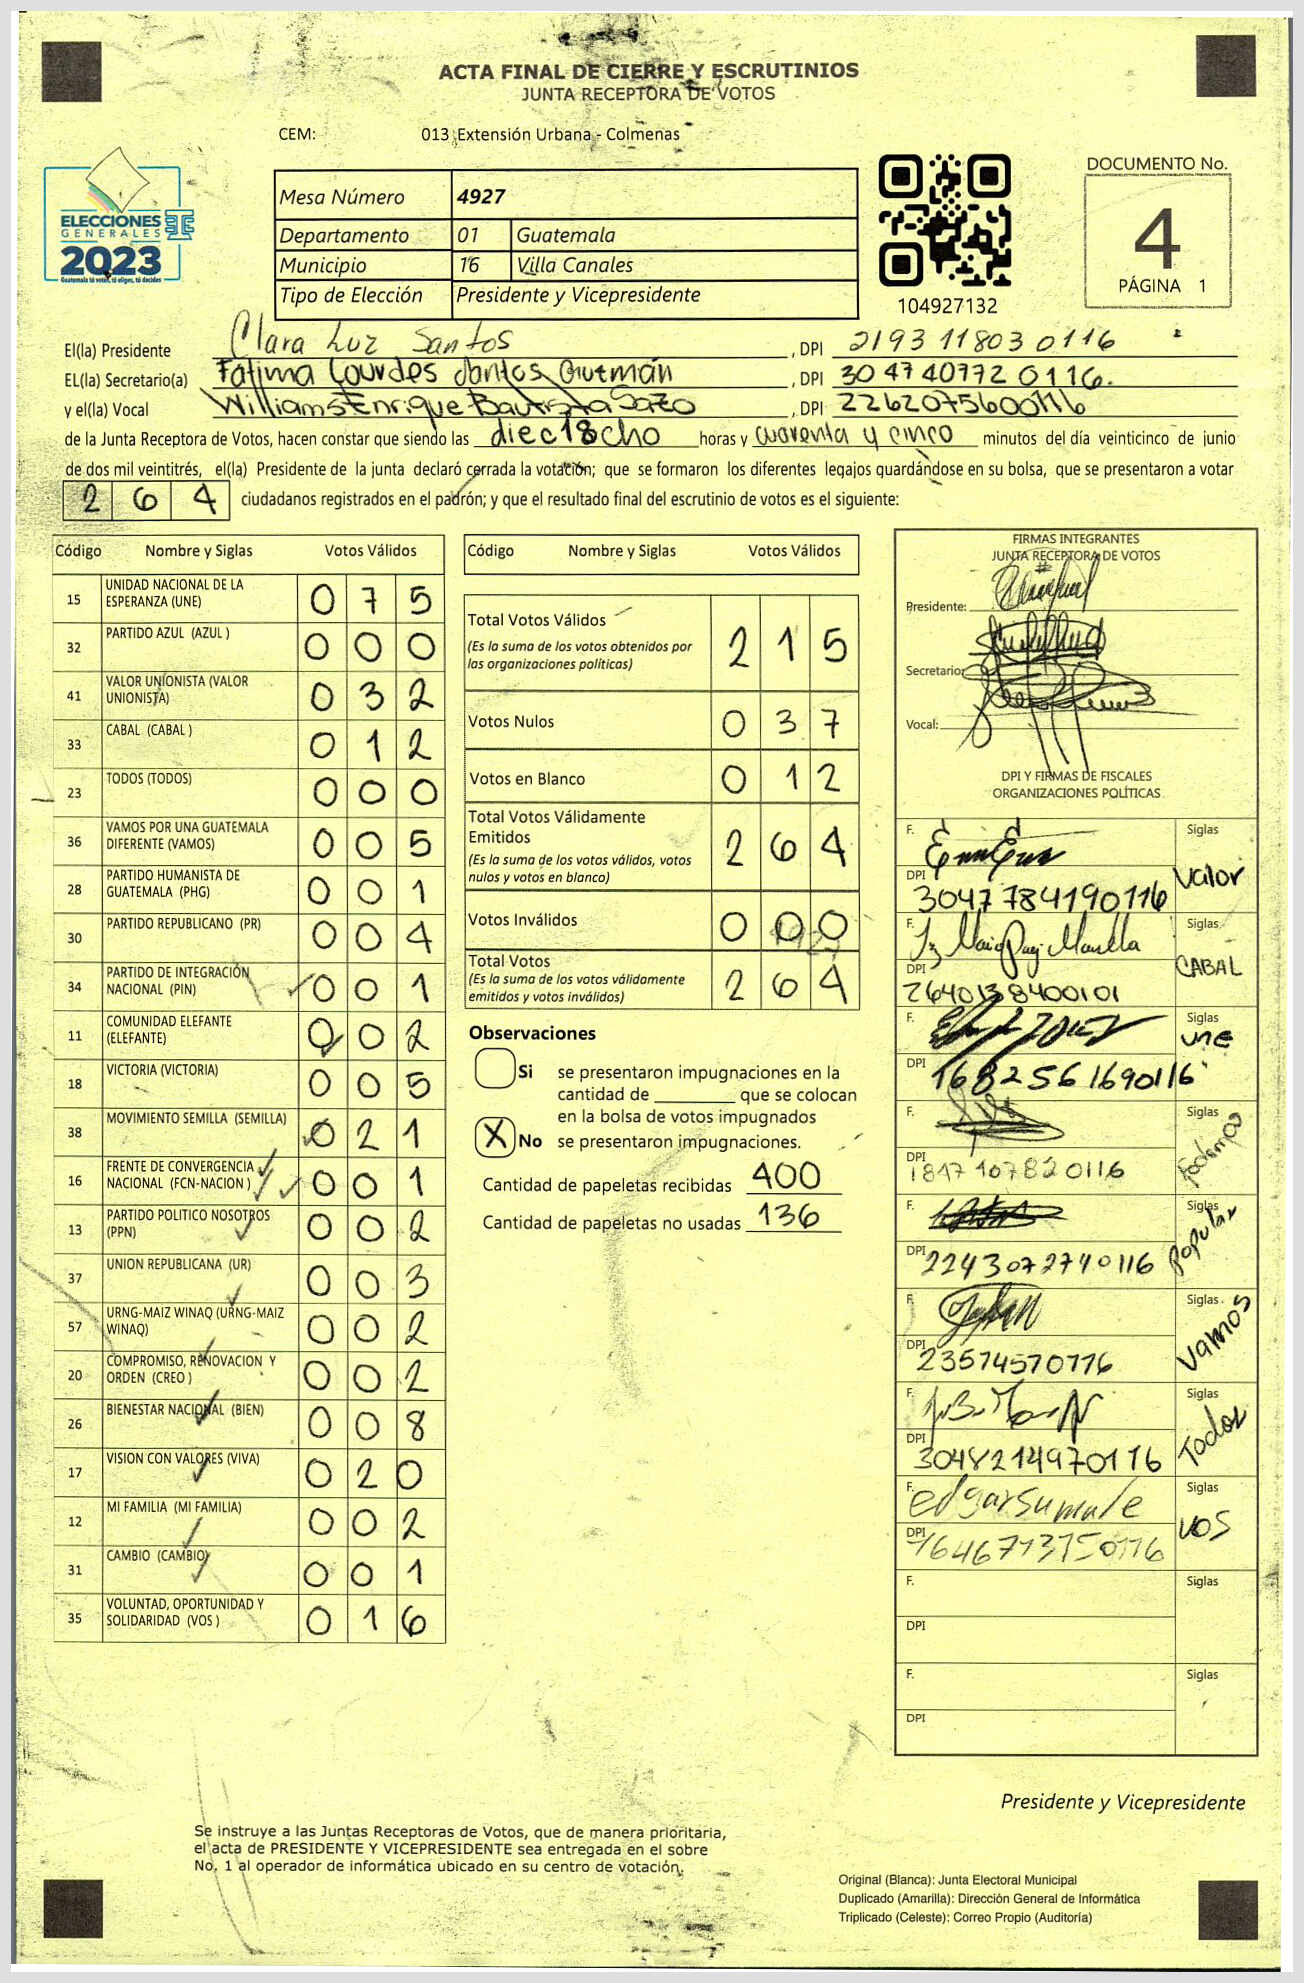 ACTA FINAL DE CIERRE Y ESCRUTINIOS
JUNTA RECEPTORA DE VOTOS
CEM: 013 Extensión Urbana - Colmenas
ELECCIONES
GENERALES
2023
Guatemala tú votas, tú eliges, tú decides
Mesa Número 4927
Departamento 01 Guatemala
Municipio 16 Villa Canales
Tipo de Elección Presidente y Vicepresidente
104927132
DOCUMENTO No.
4
PÁGINA 1
El(la) Presidente Clara Luz Santos , DPI 2193 11803 0116
EL(la) Secretario(a) Fátima Lourdes Santos Guzmán , DPI 3047407720116.
y el(la) Vocal Williams Enrique Bautista Sazo , DPI 2262075600116
de la Junta Receptora de Votos, hacen constar que siendo las dieciocho horas y cuarenta y cinco minutos del día veinticinco de junio
de dos mil veintitrés, el(la) Presidente de la junta declaró cerrada la votación; que se formaron los diferentes legajos guardándose en su bolsa, que se presentaron a votar
2 6 4 ciudadanos registrados en el padrón; y que el resultado final del escrutinio de votos es el siguiente:
Código Nombre y Siglas Votos Válidos
15 UNIDAD NACIONAL DE LA ESPERANZA (UNE) 0 7 5
32 PARTIDO AZUL (AZUL ) 0 0 0
41 VALOR UNIONISTA (VALOR UNIONISTA) 0 3 2
33 CABAL (CABAL ) 0 1 2
23 TODOS (TODOS) 0 0 0
36 VAMOS POR UNA GUATEMALA DIFERENTE (VAMOS) 0 0 5
28 PARTIDO HUMANISTA DE GUATEMALA (PHG) 0 0 1
30 PARTIDO REPUBLICANO (PR) 0 0 4
34 PARTIDO DE INTEGRACIÓN NACIONAL (PIN) 0 0 1
11 COMUNIDAD ELEFANTE (ELEFANTE) 0 0 2
18 VICTORIA (VICTORIA) 0 0 5
38 MOVIMIENTO SEMILLA (SEMILLA) 0 2 1
16 FRENTE DE CONVERGENCIA NACIONAL (FCN-NACION ) 0 0 1
13 PARTIDO POLITICO NOSOTROS (PPN) 0 0 2
37 UNION REPUBLICANA (UR) 0 0 3
57 URNG-MAIZ WINAQ (URNG-MAIZ WINAQ) 0 0 2
20 COMPROMISO, RENOVACION Y ORDEN (CREO ) 0 0 2
26 BIENESTAR NACIONAL (BIEN) 0 0 8
17 VISION CON VALORES (VIVA) 0 2 0
12 MI FAMILIA (MI FAMILIA) 0 0 2
31 CAMBIO (CAMBIO) 0 0 1
35 VOLUNTAD, OPORTUNIDAD Y SOLIDARIDAD (VOS ) 0 1 6
Código Nombre y Siglas Votos Válidos
Total Votos Válidos 2 1 5
(Es la suma de los votos obtenidos por
las organizaciones políticas)
Votos Nulos 0 3 7
Votos en Blanco 0 1 2
Total Votos Válidamente
Emitidos 2 6 4
(Es la suma de los votos válidos, votos
nulos y votos en blanco)
Votos Inválidos 0 0 0
Total Votos 2 6 4
(Es la suma de los votos válidamente
emitidos y votos inválidos)
Observaciones
Si se presentaron impugnaciones en la
cantidad de ________ que se colocan
en la bolsa de votos impugnados
X No se presentaron impugnaciones.
Cantidad de papeletas recibidas 400
Cantidad de papeletas no usadas 136
FIRMAS INTEGRANTES
JUNTA RECEPTORA DE VOTOS
Presidente:
Secretario:
Vocal:
DPI Y FIRMAS DE FISCALES
ORGANIZACIONES POLÍTICAS
F. Siglas Valor
DPI 3047784190116
F. Siglas CABAL
DPI 2640138400101
F. Siglas UNE
DPI 1682561690116
F. Siglas
DPI 1817107820116
F. Siglas Popular
DPI 2243072740116
F. Siglas Vamos
DPI 23574570776
F. Siglas Todos
DPI 3048214970116
F. edgar Siglas VOS
DPI
F. Siglas
DPI
F. Siglas
DPI
Presidente y Vicepresidente
Se instruye a las Juntas Receptoras de Votos, que de manera prioritaria,
el acta de PRESIDENTE Y VICEPRESIDENTE sea entregada en el sobre
No. 1 al operador de informática ubicado en su centro de votación.
Original (Blanca): Junta Electoral Municipal
Duplicado (Amarilla): Dirección General de Informática
Triplicado (Celeste): Correo Propio (Auditoría)